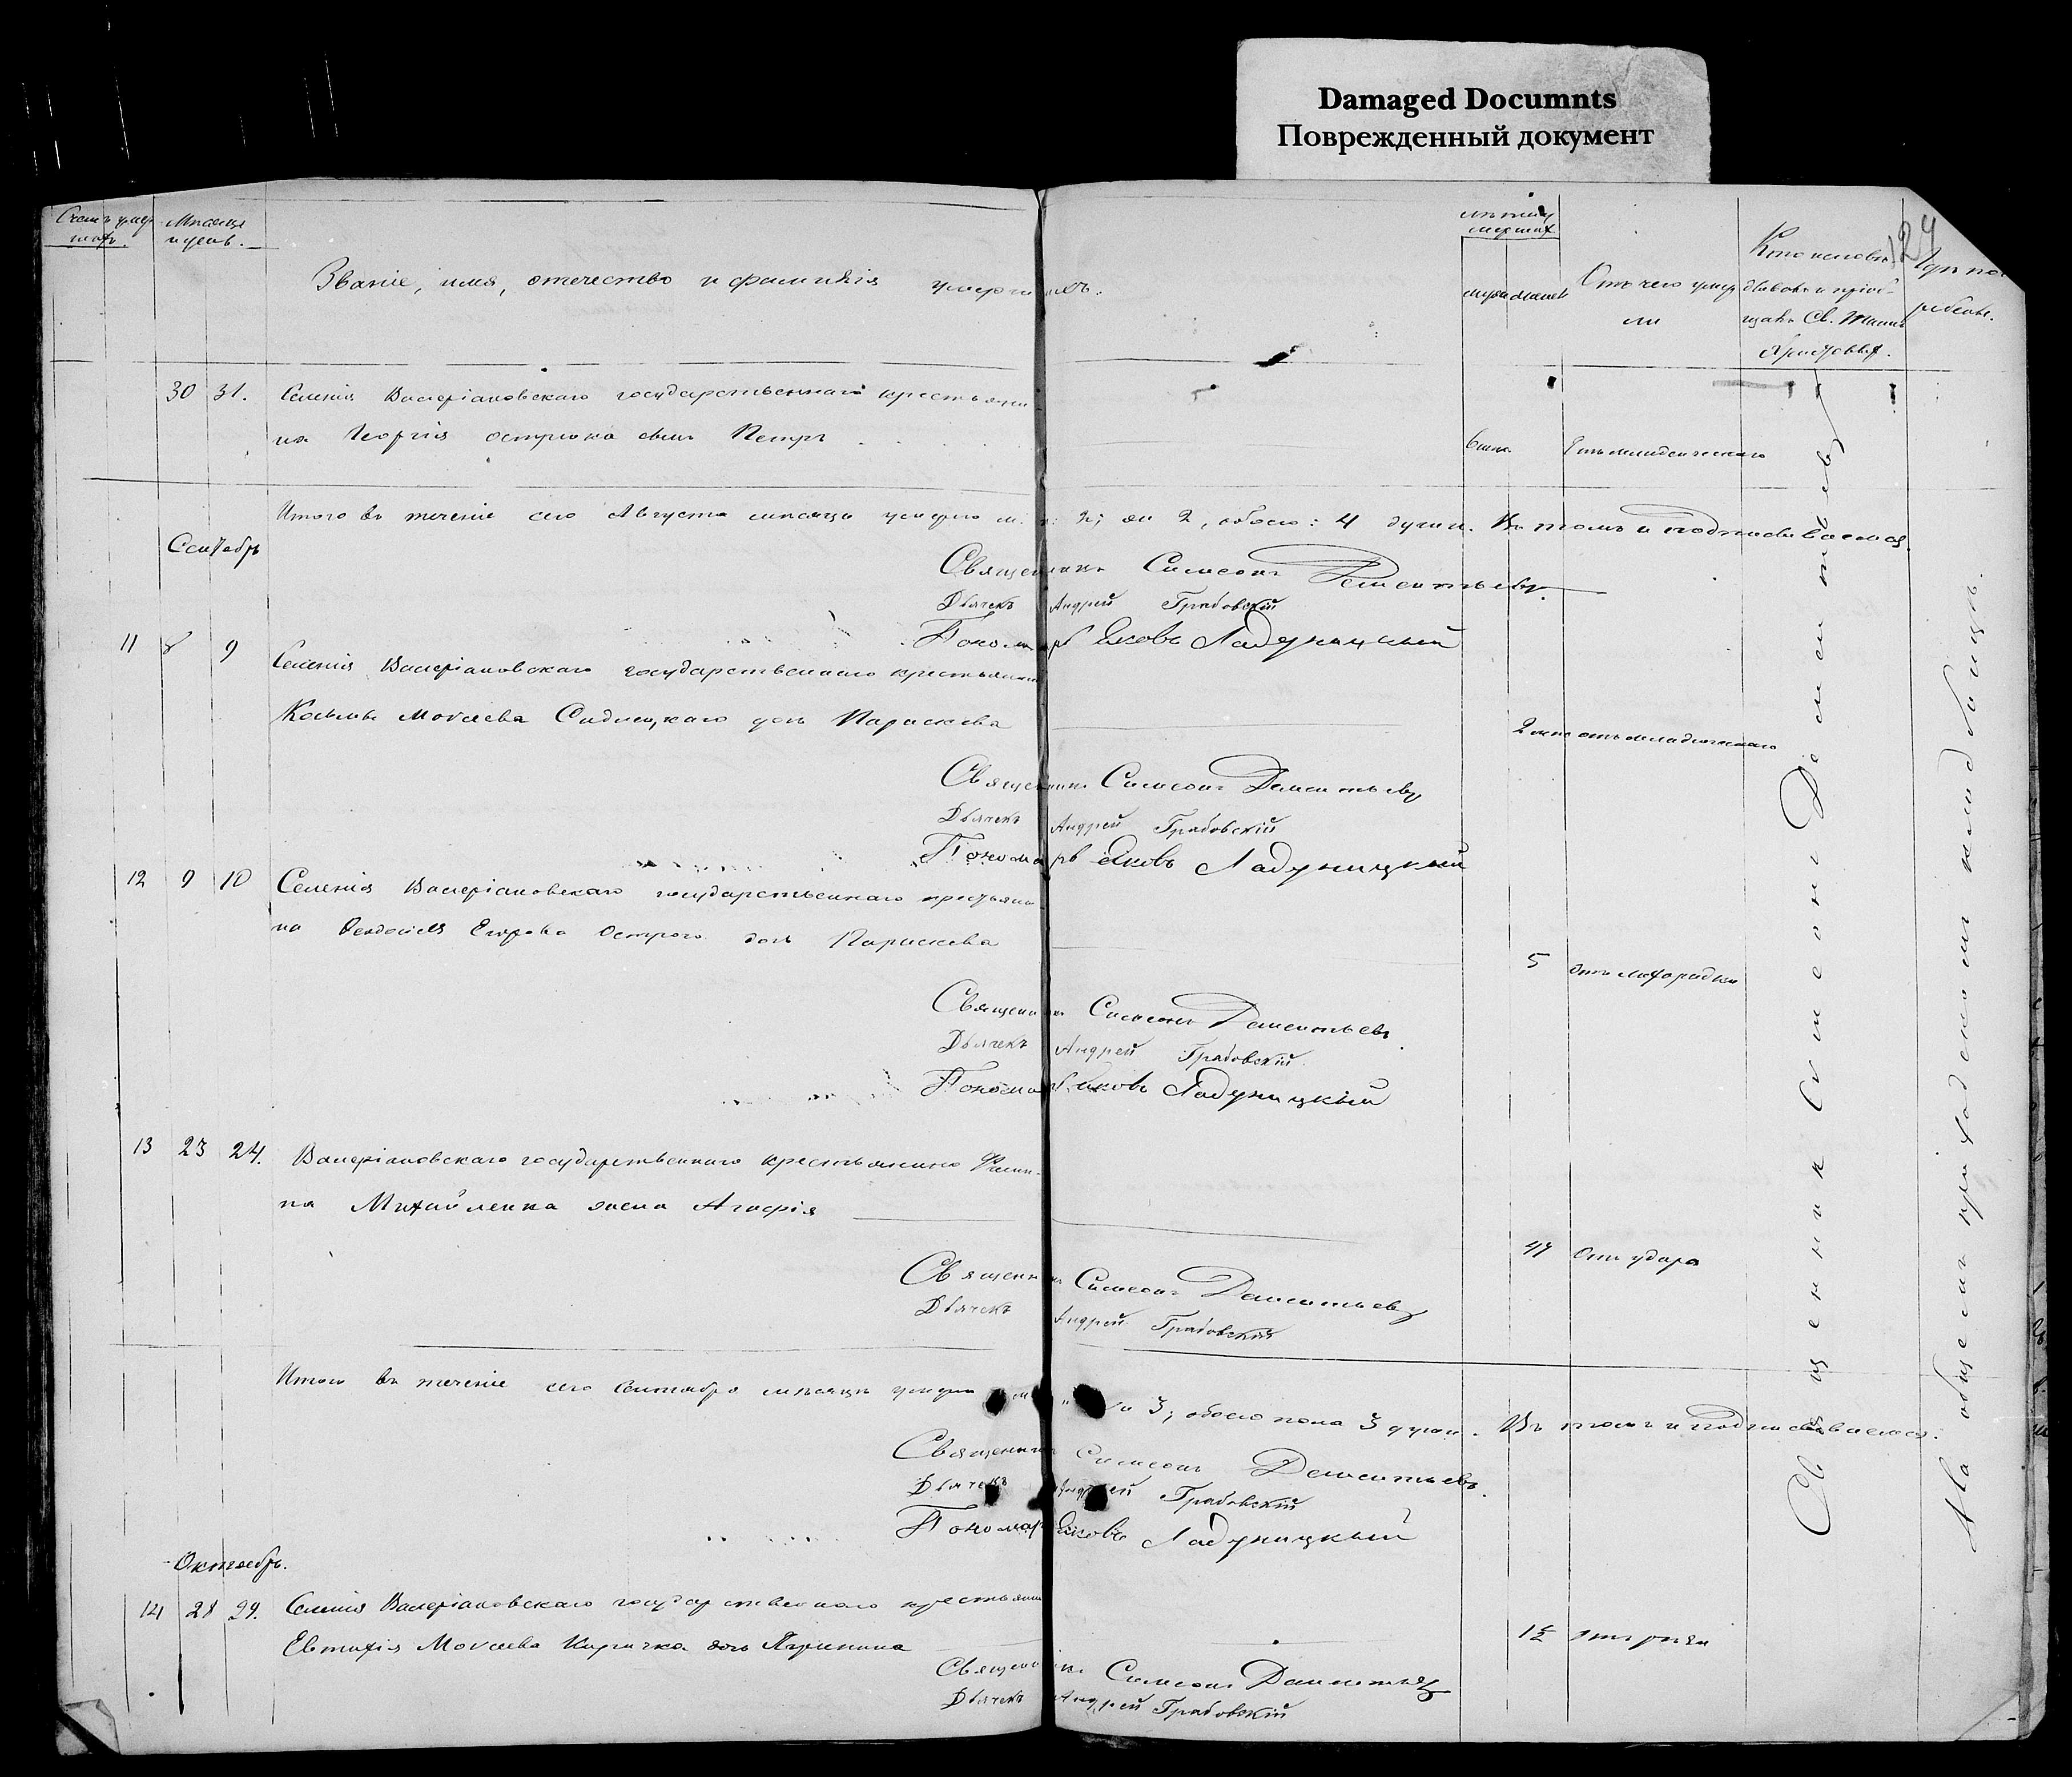 Damaged Documnts
Поврежденный документ
Мѣсяцъ
и день.
Званіе, имя, отчество и фамилія умершихъ.
лѣта умершихъ
Отъ чего умерли
Кто исповѣдывалъ и пріобщалъ Св. Таинъ Христовыхъ.
124
30 31. Селенія Валеріановскаго государственнаго крестьяни
на Георгія острюка сынъ Петръ
Отъ младенческаго
Итого въ теченіе сего Августа мѣсяца умерло м. п: 2; ж 2, обоего: 4 души. Въ томъ и подписываемся.
Сентябрь
Священникъ Симеонъ Дементьевъ.
Дьячекъ Андрей Грабовскій
Пономарь Яковъ Ладуницкый
11 8 9 Селенія Валеріановскаго государственнаго крестьянина
Косьмы Моисеева Садлецкаго дочь Параскева
2 отъ младенческаго
Священникъ Симеонъ Дементьевъ
Дьячекъ Андрей Грабовскій
Пономарь Яковъ Ладуницкый
12 9 10 Селенія Валеріановскаго государственнаго крестьяни
на Егорова Острого дочь Параскева
5 отъ лихорадки
Священникъ Симеонъ Дементьевъ.
Дьячекъ Андрей Грабовскій
Пономарь Яковъ Ладуницкій
13 23 24. Валеріановскаго государственнаго крестьянина Филип-
па Михайленка жена Агафія
Отъ удара
Священникъ Симеонъ Дементьевъ
Дьячекъ Андрей Грабовскій
Итого въ теченіе сего Сентября мѣсяца умерло м. " ж 3; обоего пола 3 души. Въ томъ и подписываемся.
Священникъ Симеонъ Дементьевъ.
Дьячекъ Андрей Грабовскій
Пономарь Яковъ Ладуницкый
Октябрь.
14 28 29. Селенія Валеріановскаго государственнаго крестьянина
Евтихія Моисеева Киричка дочь
Священникъ Симеонъ Дементьевъ
Дьячекъ Андрей Грабовскій
Священникъ Симеонъ Дементьевъ
На общемъ приходскомъ кладбищѣ.